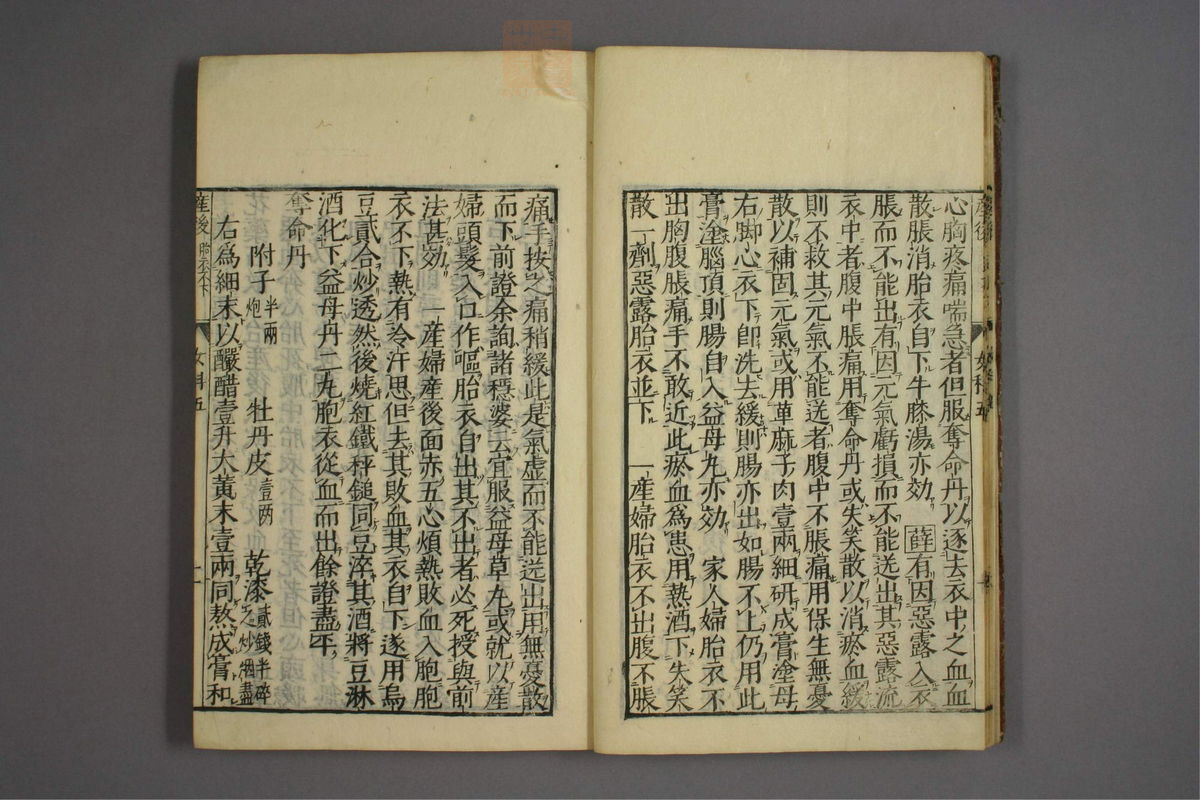 心胸疼痛喘急者但服奪命丹以逐去衣中之血血
散脹消胎衣自下牛膝湯亦効　薛有因惡露入衣
脹而不能出有因元氣虧損而不能送出其惡露流
衣中者腹中脹痛用奪命丹或失笑散以消瘀血緩
則不救其元氣不能送者腹中不脹痛用保生無憂
散以補固元氣或用萆麻子肉壹兩細研成膏塗母
右脚心衣下即洗去緩則腸亦出如腸不上仍用此
膏塗腦頂則腸自入益母丸亦効　家人婦胎衣不
出胸腹脹痛手不敢近此瘀血爲患用熱酒下失笑
散一劑惡露胎衣並下　一產婦胎衣不出腹不脹
痛手按之痛稍緩此是氣虚而不能送出用無憂散
而下前證余詢諸穩婆云宜服益母草丸或就以産
婦頭髮入口作嘔胎衣自出其不出者必死授與前
法甚効　一産婦産後面赤五心煩熱敗血入胞胞
衣不下熱有冷汗思但去其敗血其衣自下遂用烏
豆貳合炒透然後燒紅鐵秤鎚同豆淬其酒將豆淋
酒化下益母丹二丸胞衣從血而出餘證盡平
奪命丹
附子半兩炮　牡丹皮壹兩　乾漆貳錢半碎之炒烟盡
右爲細末以釅醋壹升大黄末壹兩同熬成膏和
産後　胎衣不下　女科五